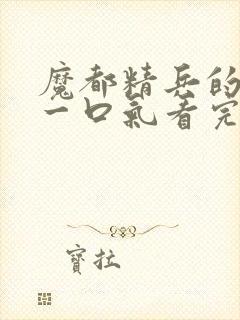 魔都精兵的
一口氣看完
寶拉